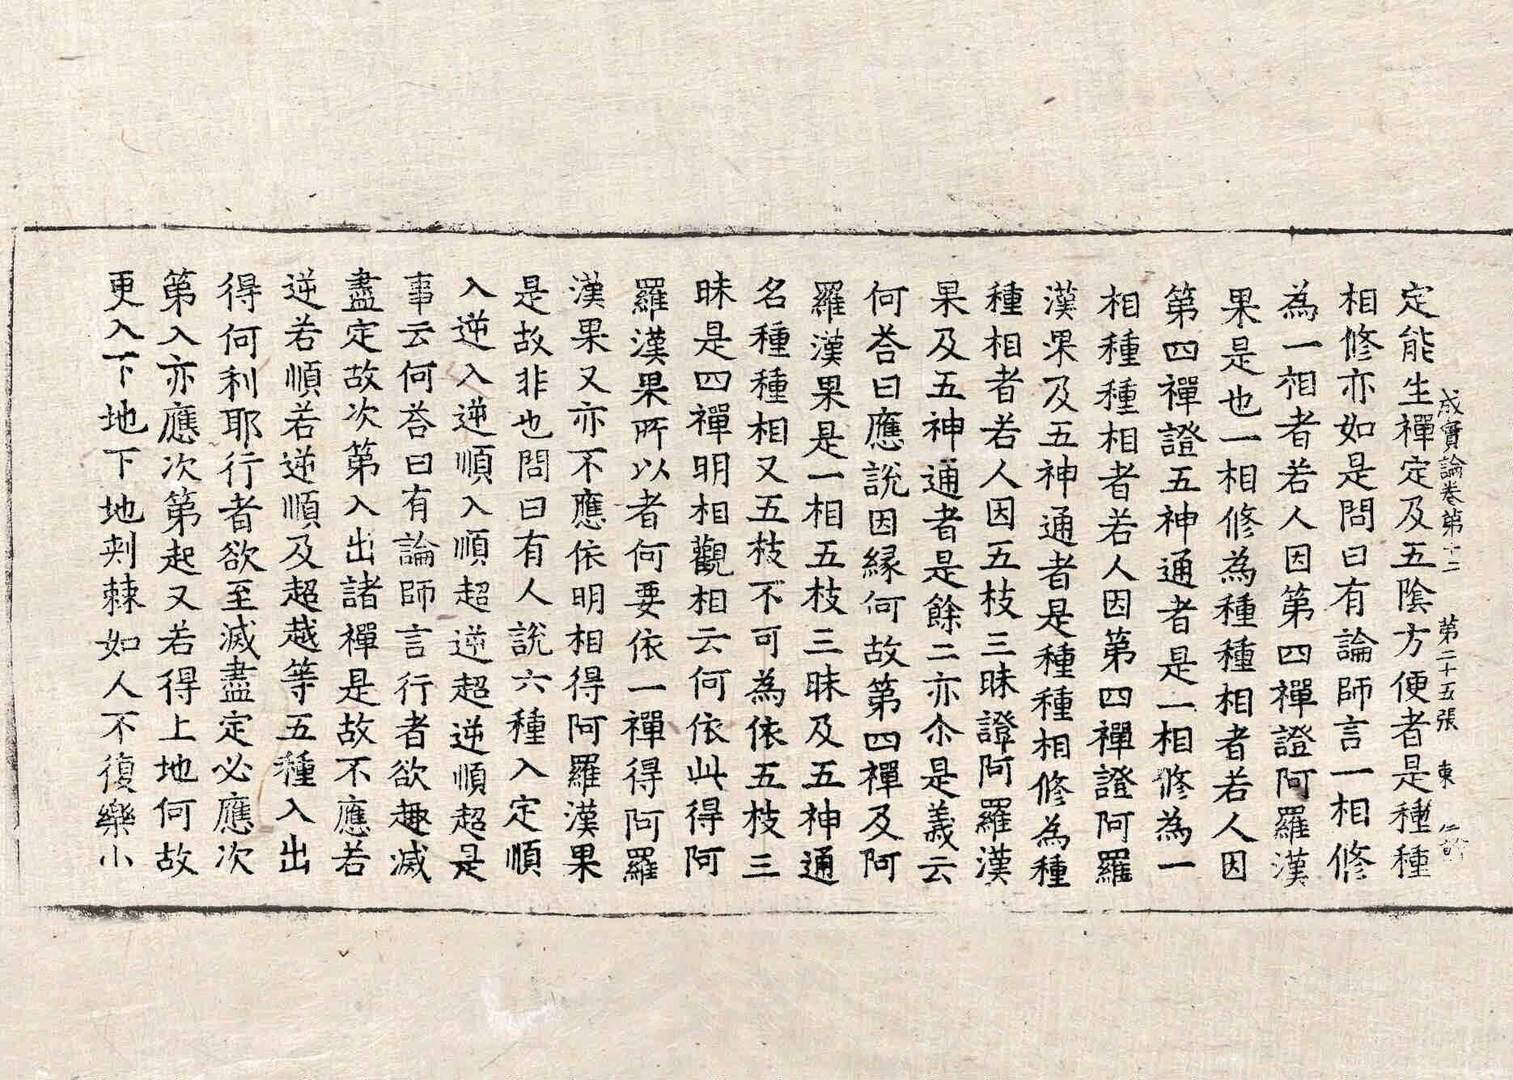 成實論卷第十二　第二十五張　東
定能生禪定及五陰方便者是種種
相修亦如是問曰有論師言一相修
為一相者若人因第四禪證阿羅漢
果是也一相修為種種相者若人因
第四禪證五神通者是一相修為一
相種種相者若人因第四禪證阿羅
漢果及五神通者是種種相修為種
種相者若人因五枝三昧證阿羅漢
果及五神通者是餘二亦尒是義云
何荅曰應說因緣何故第四禪及阿
羅漢果是一相五枝三昧及五神通
名種種相又五枝不可為依五枝三
昧是四禪明相觀相云何依此得阿
羅漢果所以者何要依一禪得阿羅
漢果又亦不應依明相得阿羅漢果
是故非也問曰有人說六種入定順
入逆入逆順入順超逆超逆順超是
事云何荅曰有論師言行者欲趣滅
盡定故次第入出諸禪是故不應若
逆若順若逆順及超越等五種入出
得何利耶行者欲至滅盡定必應次
第入亦應次第起又若得上地何故
更入下地下地刺棘如人不復樂小